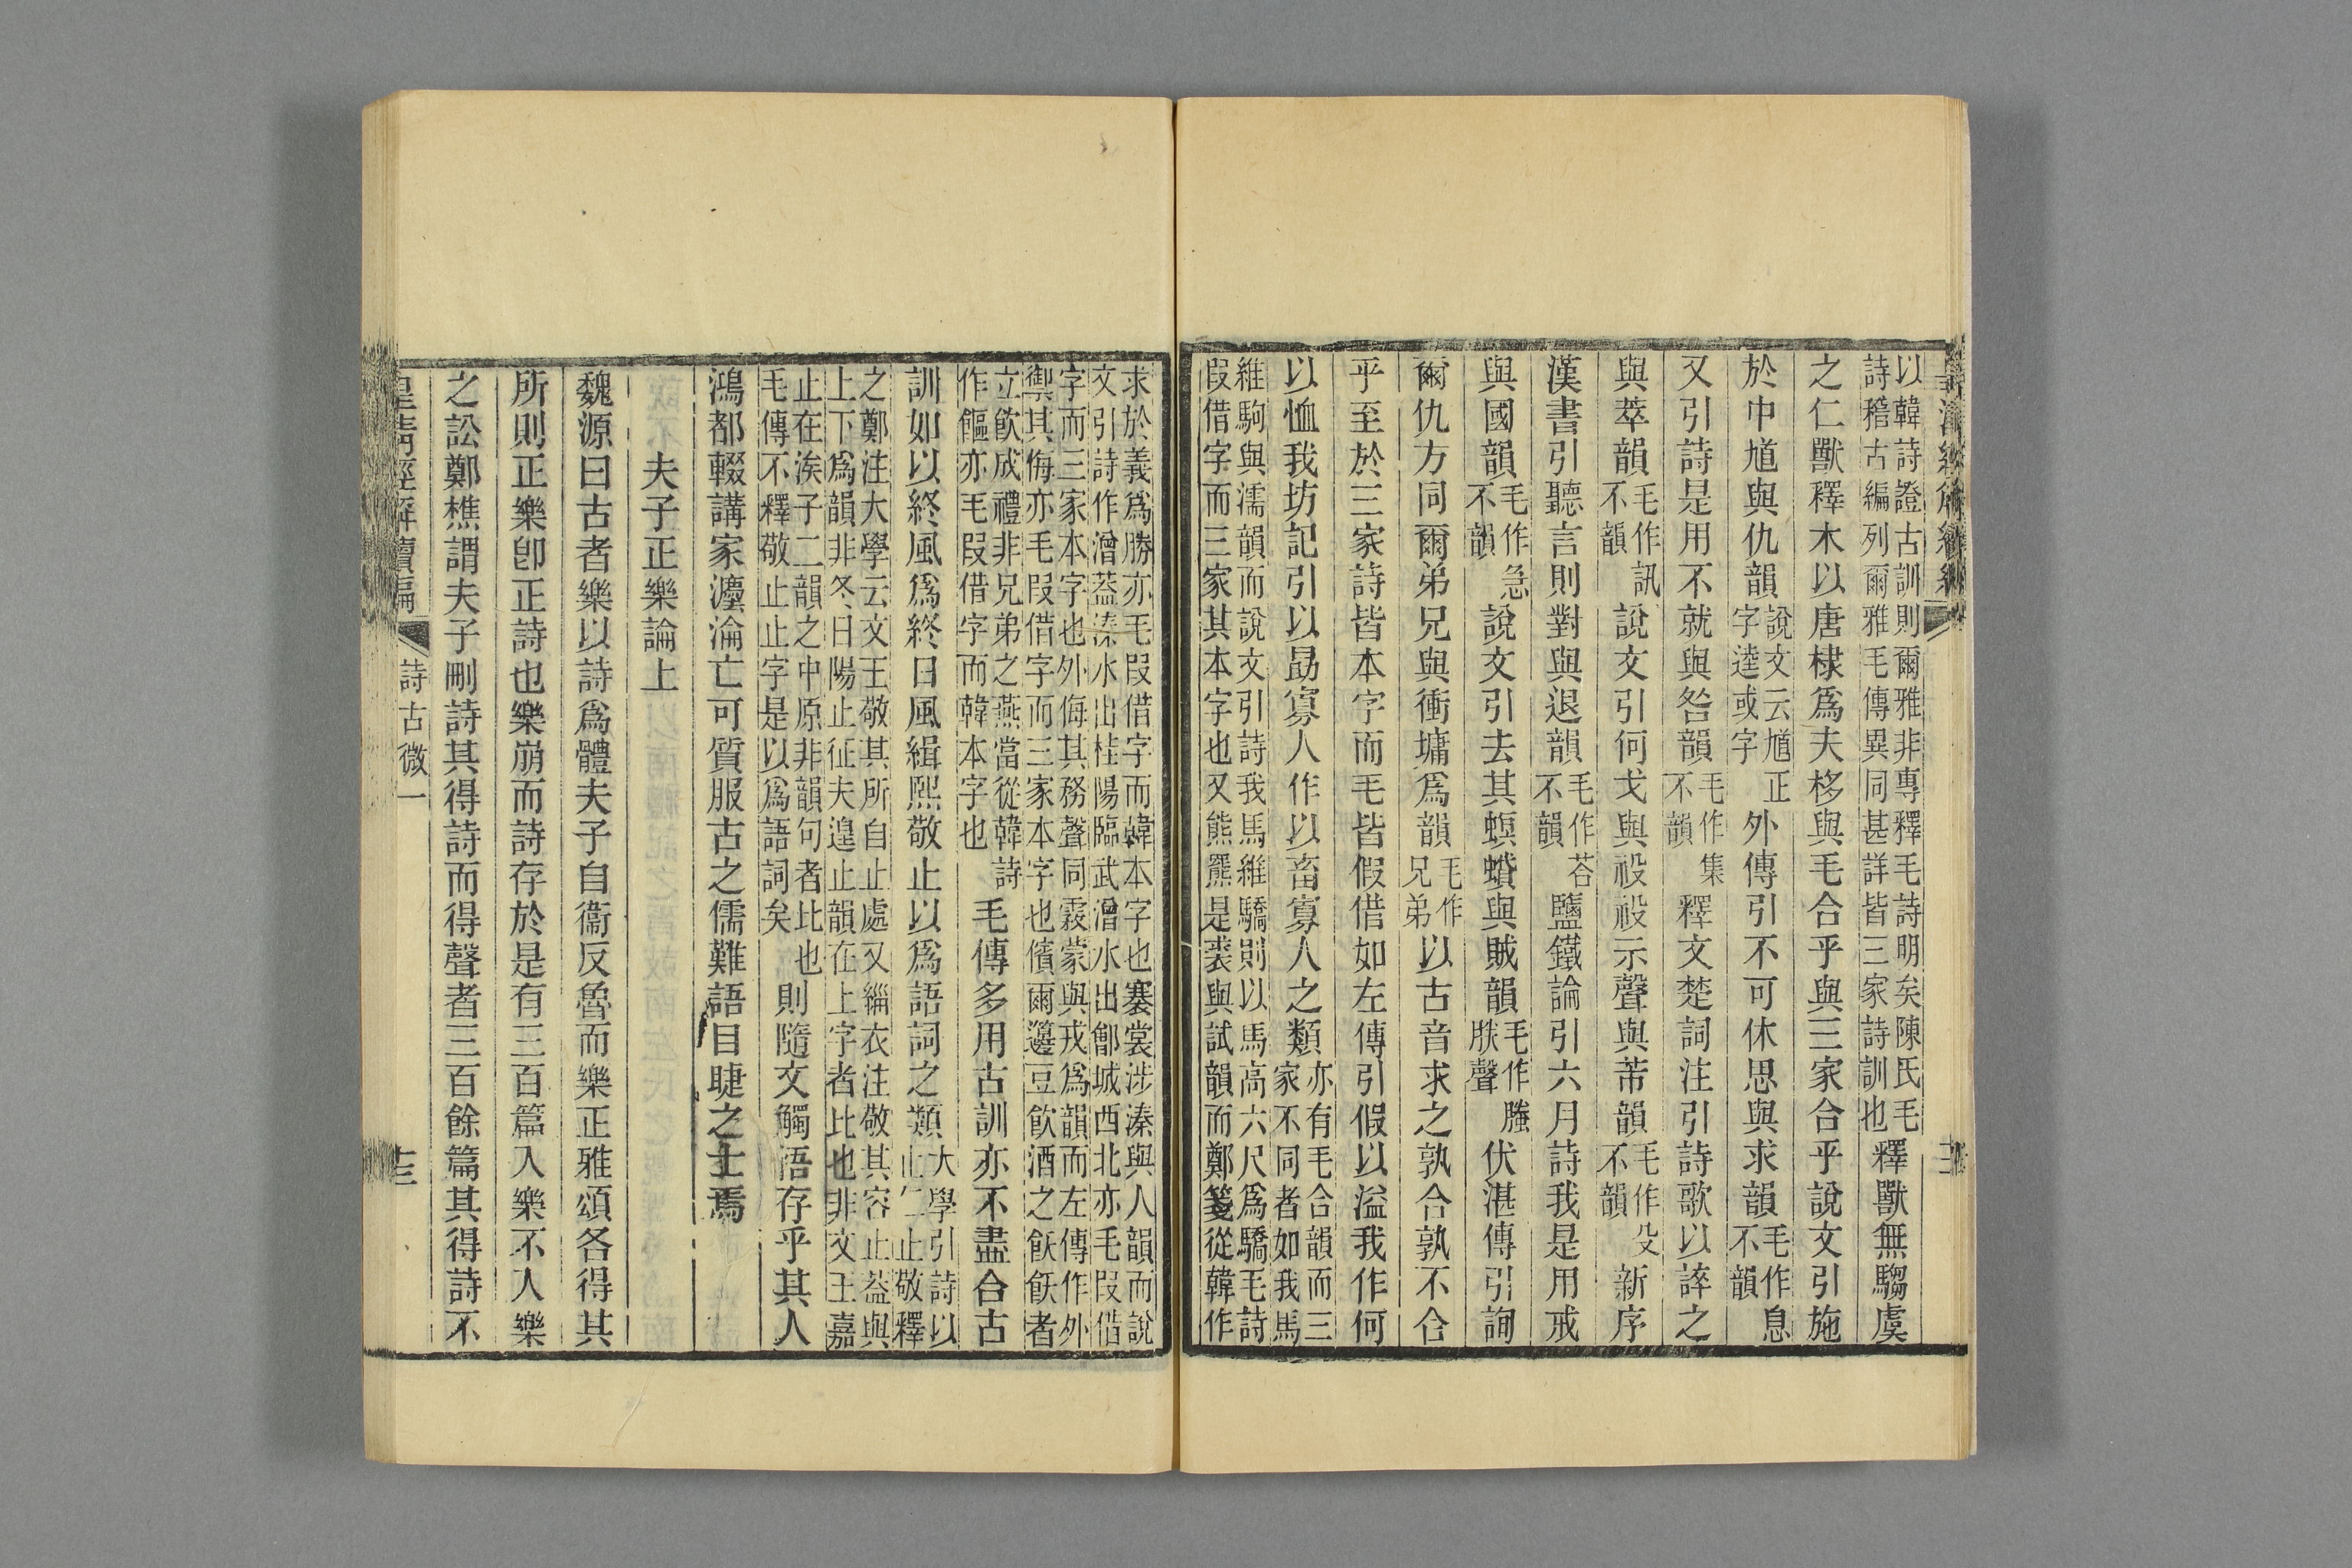 以韓詩證古訓則爾雅非專釋毛詩明矣陳氏毛
詩稽古編列爾雅毛傳異同甚詳皆三家詩訓也
釋獸無騶虞
之仁獸釋木以唐棣爲夫栘與毛合乎與三家合乎說文引施
於中馗與仇韻
說文云馗正
字逵或字
外傳引不可休思與求韻
毛作息
不韻
又引詩是用不就與咎韻
毛作集
不韻
釋文楚詞注引詩歌以誶之
與萃韻
毛作訊
不韻
說文引何戈與祋祋示聲與芾韻
毛作殳
不韻
新序
漢書引聽言則對與退韻
毛作荅
不韻
鹽鐵論引六月詩我是用戒
與國韻
毛作急
不韻
說文引去其螟蟘與賊韻
毛作螣
朕聲
伏湛傳引詢
爾仇方同爾弟兄與衝墉爲韻
毛作
兄弟
以古音求之孰合孰不合
乎至於三家詩皆本字而毛皆假借如左傳引假以溢我作何
以恤我坊記引以勗寡人作以畜寡人之類
亦有毛合韻而三
家不同者如我馬
維駒與濡韻而說文引詩我馬維驕則以馬高六尺爲驕毛詩
叚借字而三家其本字也又熊羆是裘與試韻而鄭箋從韓作
求於義爲勝亦毛叚借字而韓本字也褰裳涉溱與人韻而說
文引詩作潧蓋溱水出桂陽臨武潧水出鄶城西北亦毛叚借
字而三家本字也外侮其務聲同霿蒙與戎爲韻而左傳作外
禦其侮亦毛叚借字而三家本字也儐爾籩豆飲酒之飫飫者
立飫成禮非兄弟之燕當從韓詩
作饇亦毛叚借字而韓本字也
毛傳多用古訓亦不盡合古
訓如以終風爲終日風緝熙敬止以爲語詞之類
大學引詩以
止仁止敬釋
之鄭注大學云文王敬其所自止處又緇衣注敬其容止蓋與
上下爲韻非冬日陽止征夫遑止韻在上字者比也非文王嘉
止在涘子二韻之中原非韻句者比也
毛傳不釋敬止止字是以爲語詞矣
則隨文觸啎存乎其人
鴻都輟講家灋淪亡可質服古之儒難語目睫之士焉
夫子正樂論上
魏源曰古者樂以詩爲體夫子自衞反魯而樂正雅頌各得其
所則正樂卽正詩也樂崩而詩存於是有三百篇入樂不入樂
之訟鄭樵謂夫子刪詩其得詩而得聲者三百餘篇其得詩不
皇淸經解續編
詩古微一
十三